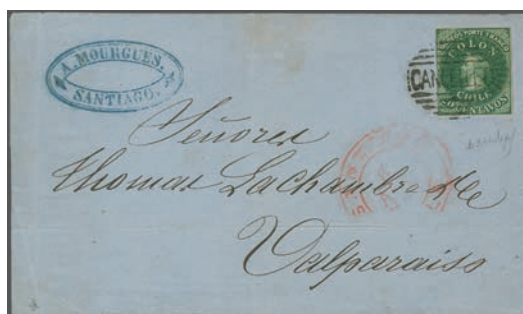 A. MOURGUES.
SANTIAGO.
COLON
CHILE
CENTAVOS
CAN
Señores
Thomas Lachambre &Ce
Valparaiso